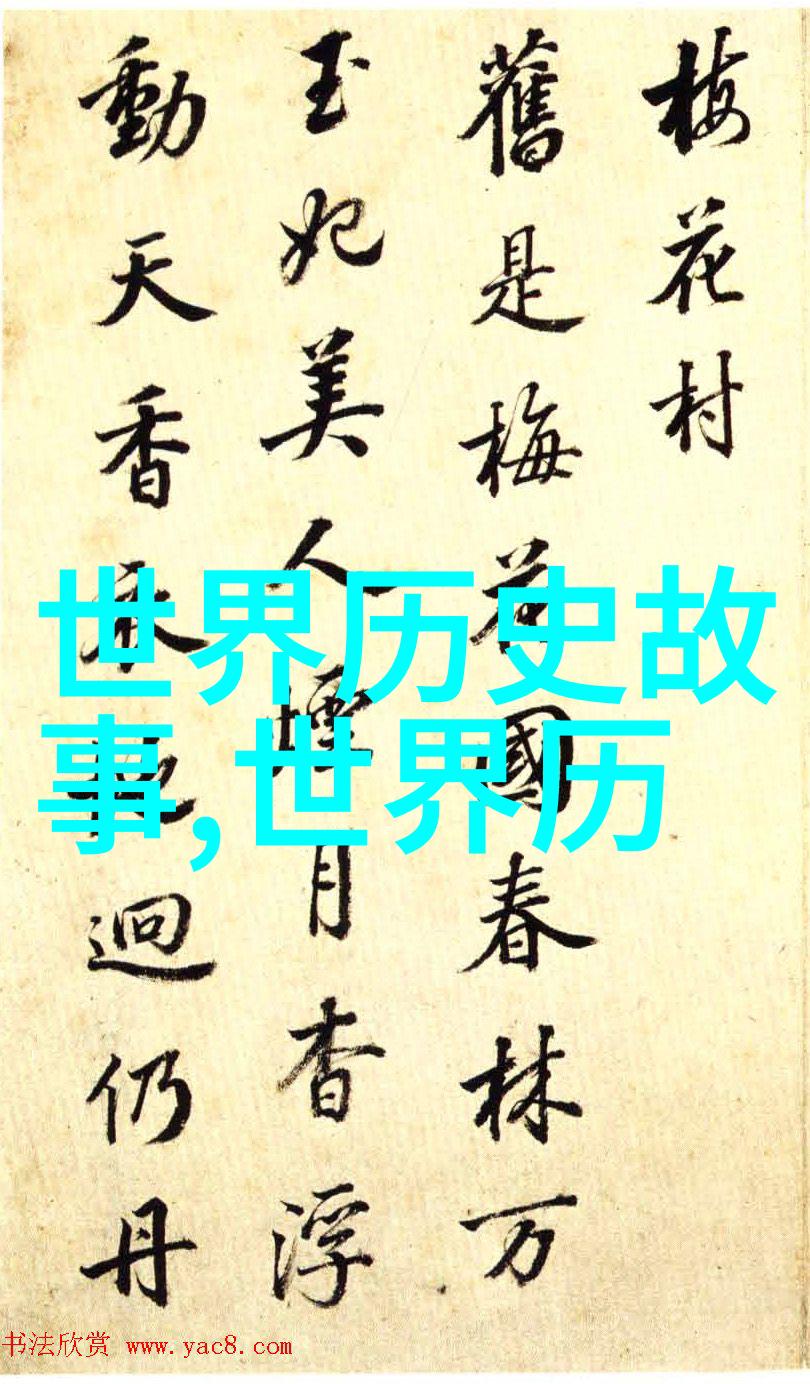 梅花村
舊是梅花國春林万
玉妃美人月杳浮
動天香仍丹
世界历史故
事,世界历
书法欣赏 www.yac8.com